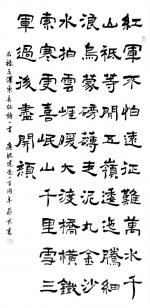 紅軍不怕遠征難萬水千
山只等閒五嶺逶迤騰細
浪烏蒙磅礴走泥丸金沙
水拍雲崖暖大渡橋橫鐵
索寒更喜岷山千里雪三
軍過後盡開顏
右錄毛澤東長征詩一首 慶祝建党一百周年